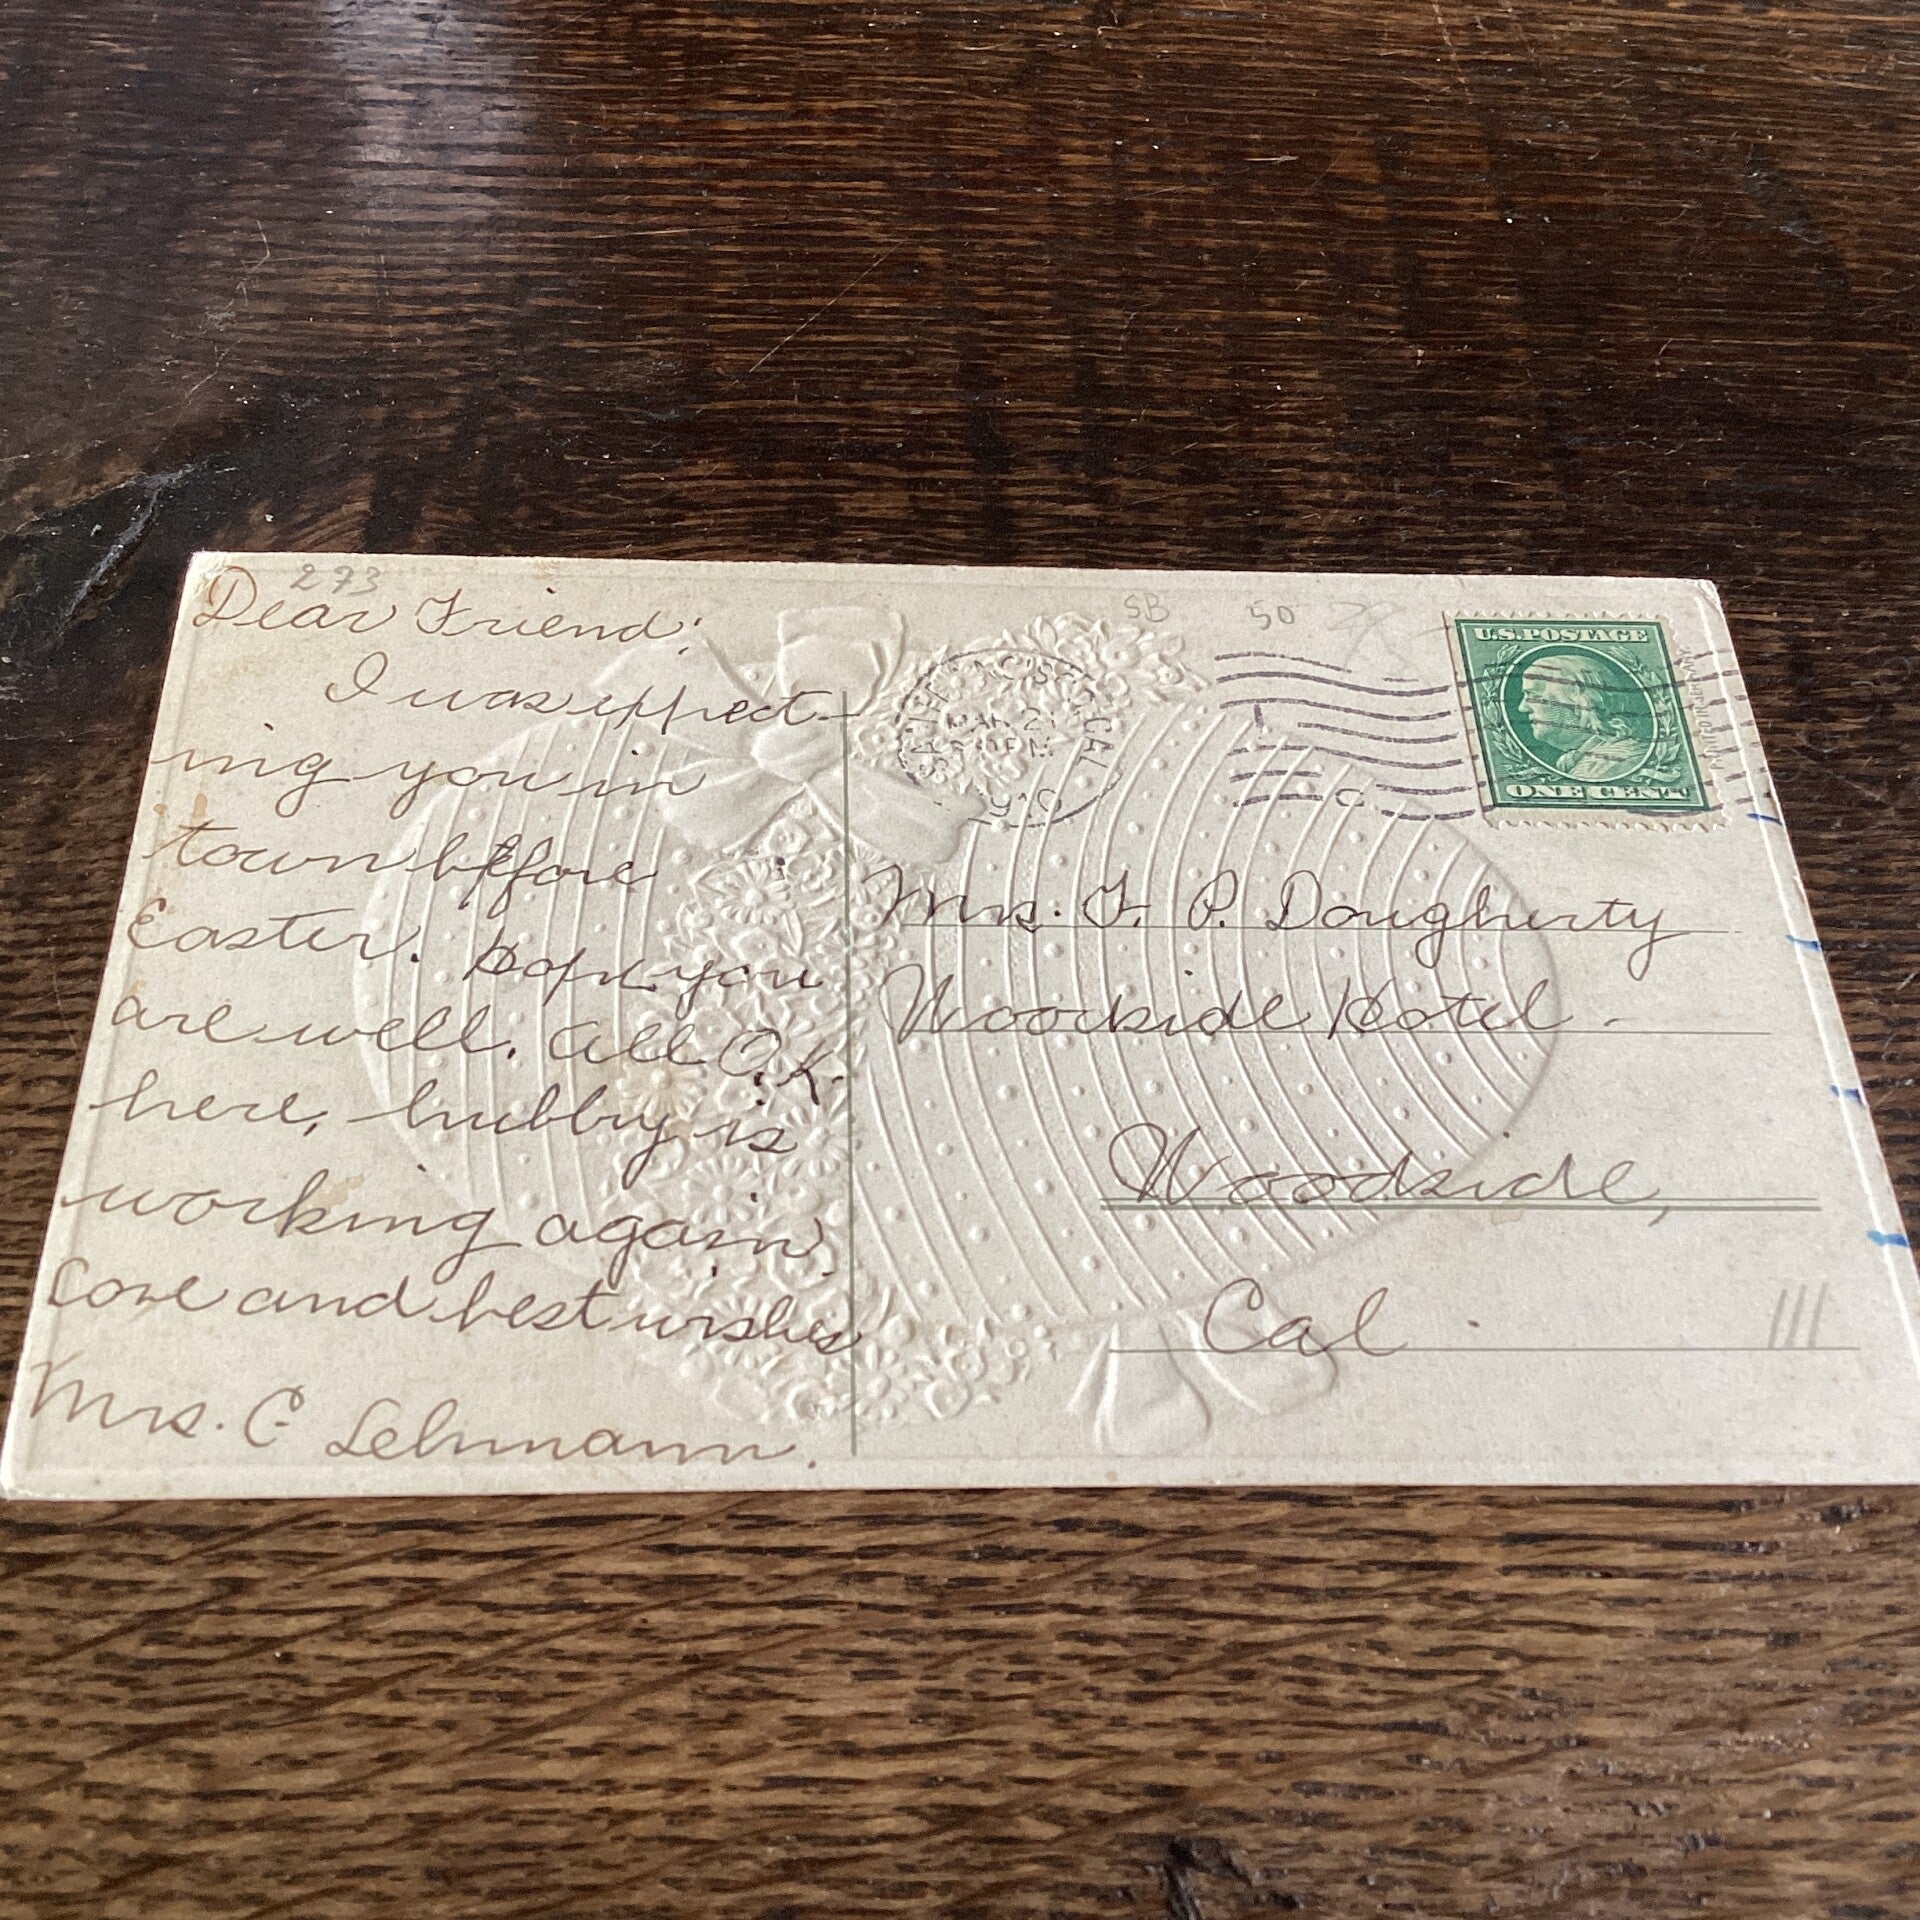 273
Dear Friend:
I was expect-
ing you in
town before
Easter. Hope you
are well. All O.K.
here, hubby is
working again
Love and best wishes
Mrs. C Lehmann.
SB
50
MAR 2
1910
U.S.POSTAGE
ONE CENT
Mrs. F. P. Dougherty
Woodside Hotel.
Woodside,
Cal.